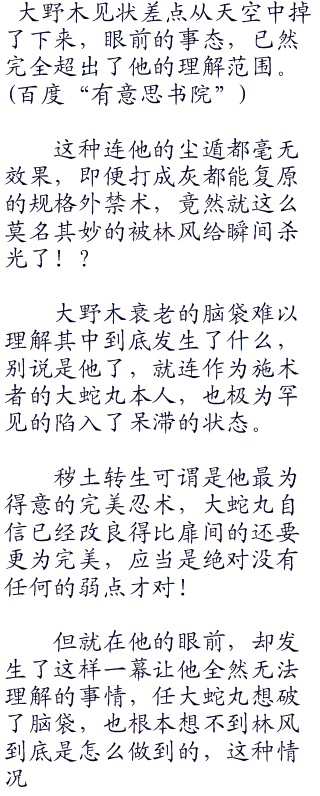 大野木见状差点从天空中掉
了下来，眼前的事态，已然
完全超出了他的理解范围。
(百度“有意思书院”)
这种连他的尘遁都毫无
效果，即便打成灰都能复原
的规格外禁术，竟然就这么
莫名其妙的被林风给瞬间杀
光了！？
大野木衰老的脑袋难以
理解其中到底发生了什么，
别说是他了，就连作为施术
者的大蛇丸本人，也极为罕
见的陷入了呆滞的状态。
秽土转生可谓是他最为
得意的完美忍术，大蛇丸自
信已经改良得比扉间的还要
更为完美，应当是绝对没有
任何的弱点才对！
但就在他的眼前，却发
生了这样一幕让他全然无法
理解的事情，任大蛇丸想破
了脑袋，也根本想不到林风
到底是怎么做到的，这种情
况